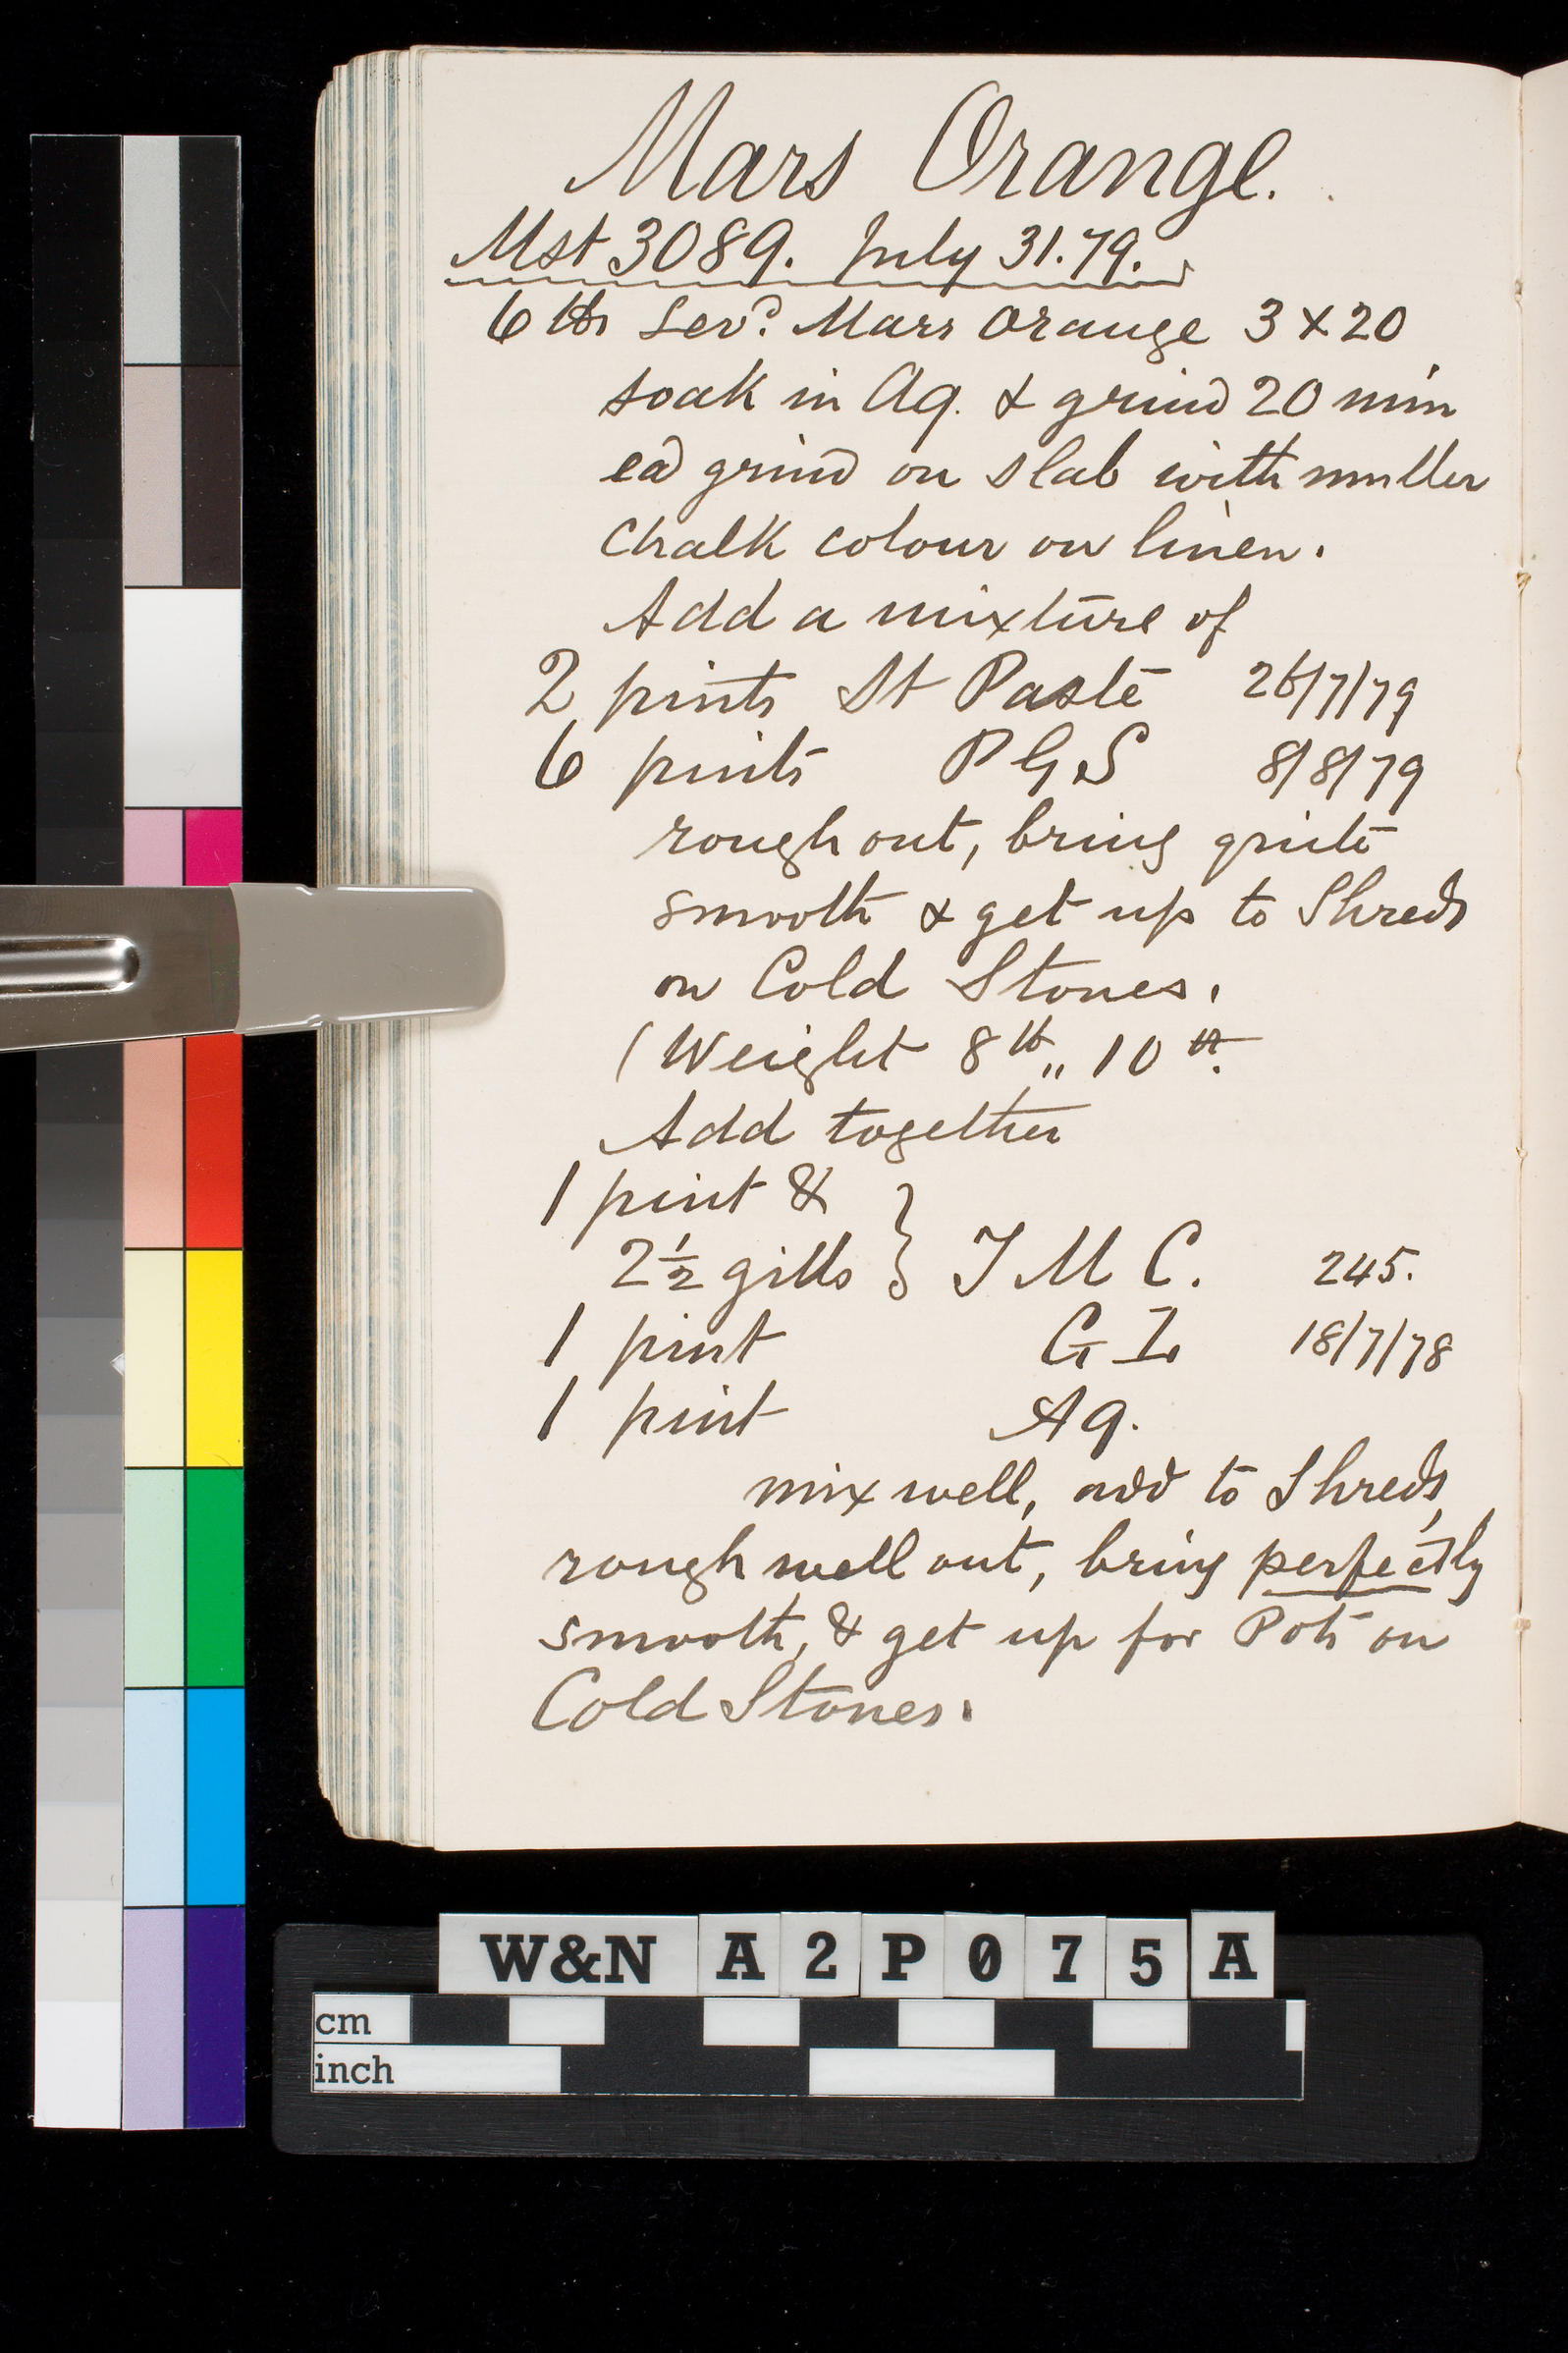 Mars Orange.
Mst 3089. July 31.79.
6 lbs Lev.d Mars Orange 3 x 20
soak in Aq. & grind 20 min
ead grind on slab with muller
Chalk colour on linen.
Add a mixture of
2 pints St Paste 26/7/79
6 pints P G S 8/8/79
rough out, bring quite
smooth & get up to Shreds
on Cold Stones.
(Weight 8 lb,, 10
Add together
1 pint &
2½ gills } J M C. 245.
1 pint G I 18/7/78
1 pint Aq.
mix well, add to Shreds,
rough well out, bring perfectly
smooth, & get up for Pots on
Cold Stones.
W&N A2P075A
cm
inch